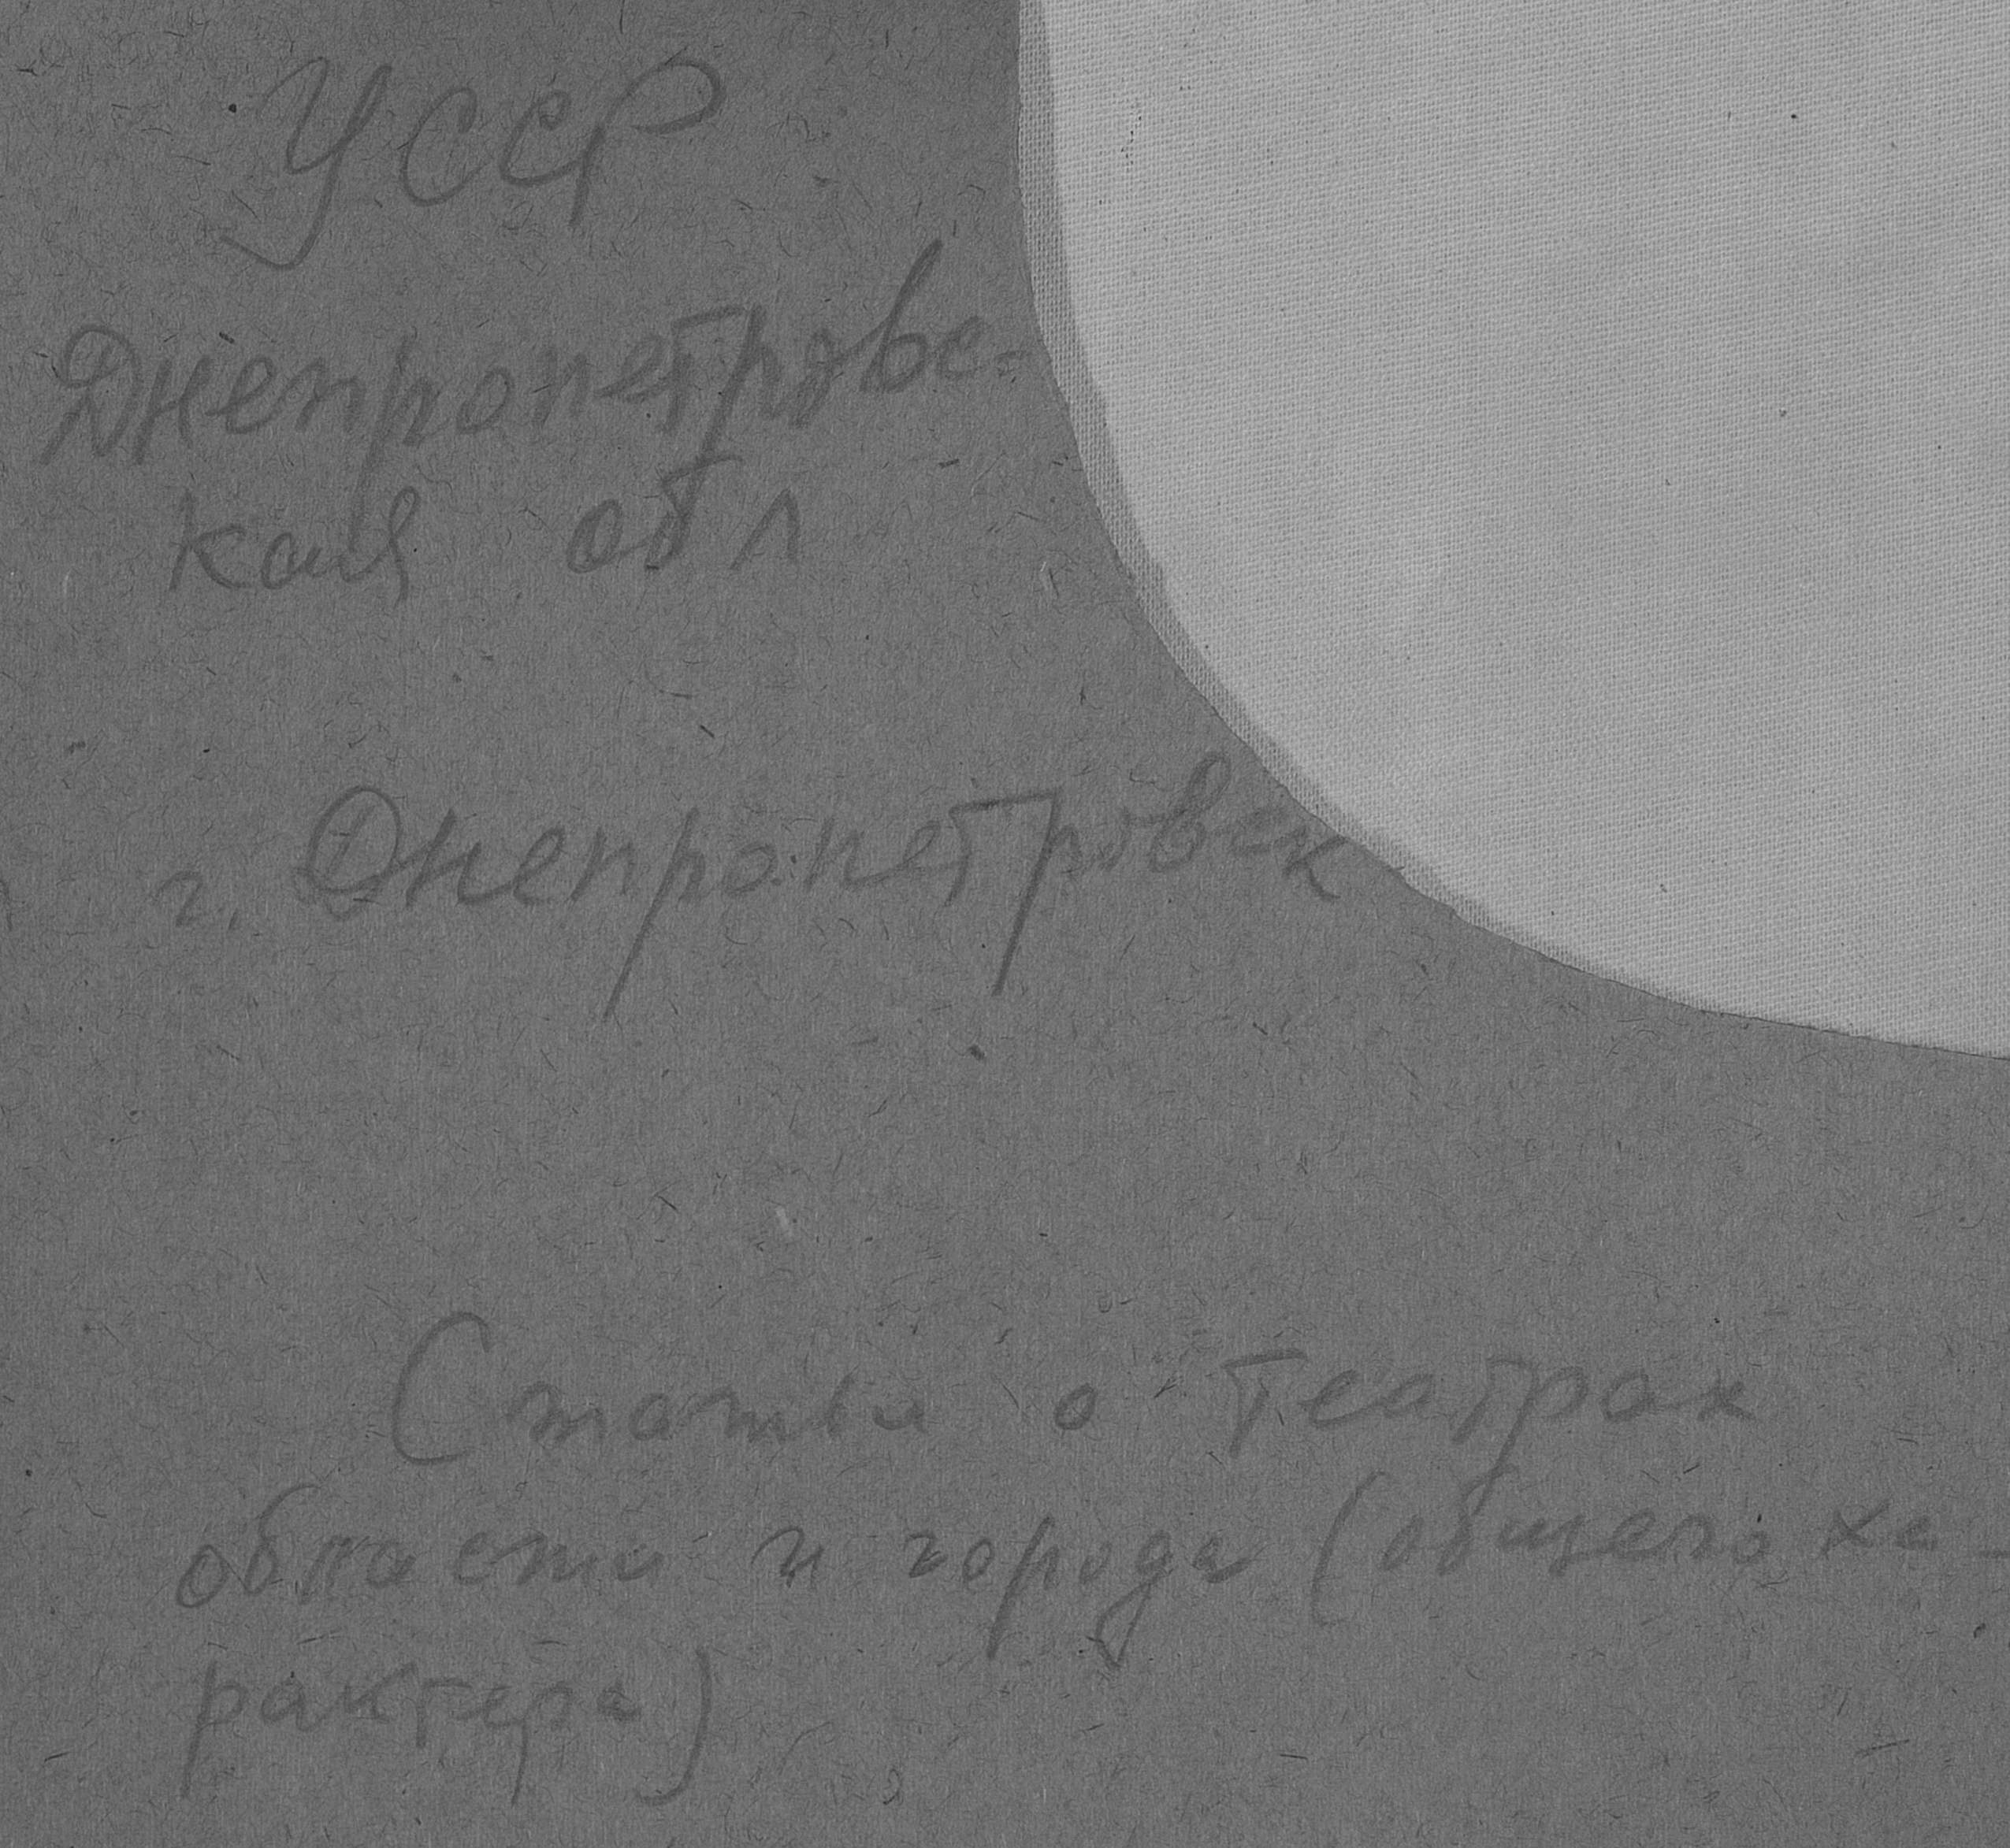 УССР
Днепропетровс-
кая обл
г. Днепропетровск
Статьи о театрах
области и города (общего ха-
рактера)